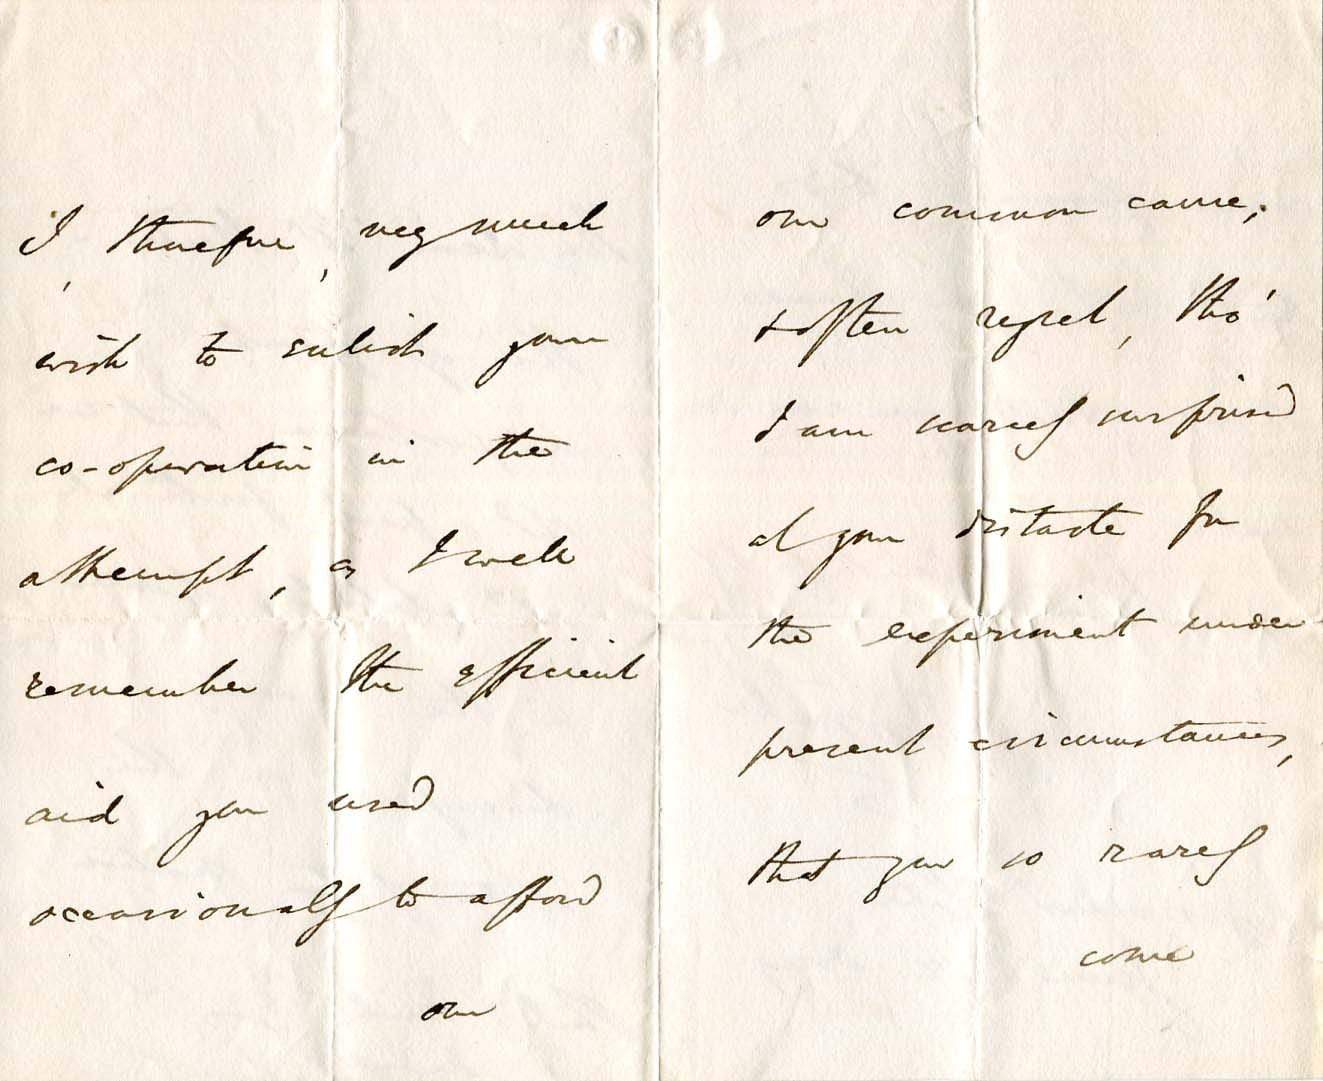 I, therefore, very much
wish to enlist your
co-operation in the
attempt, as I well
remember the efficient
aid you used
occasionally to afford
our
our common cause,
& often regret, tho'
I am scarcely surprised
at your distaste for
the experiment under
present circumstances,
that you so rarely
come